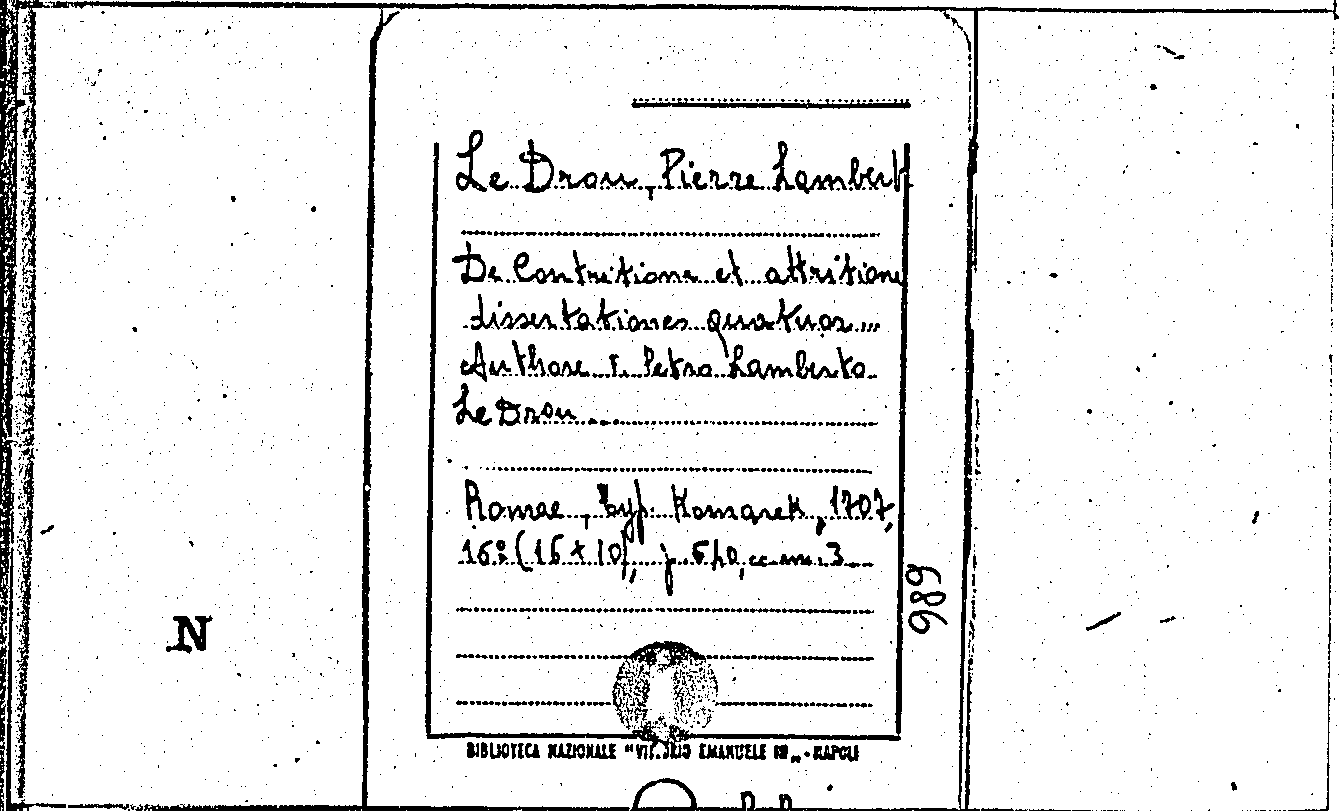 Le Drou, Pierre Lambert
De Contritione et attritione
dissertationes quatuor...
Authore F. Petro Lamberto
Le Drou...
Romae, typ. Komarek, 1707,
16º (16 x 10), p. 540, cc. nn. 3
989
N
BIBLIOTECA NAZIONALE "VITTORIO EMANUELE III" - NAPOLI